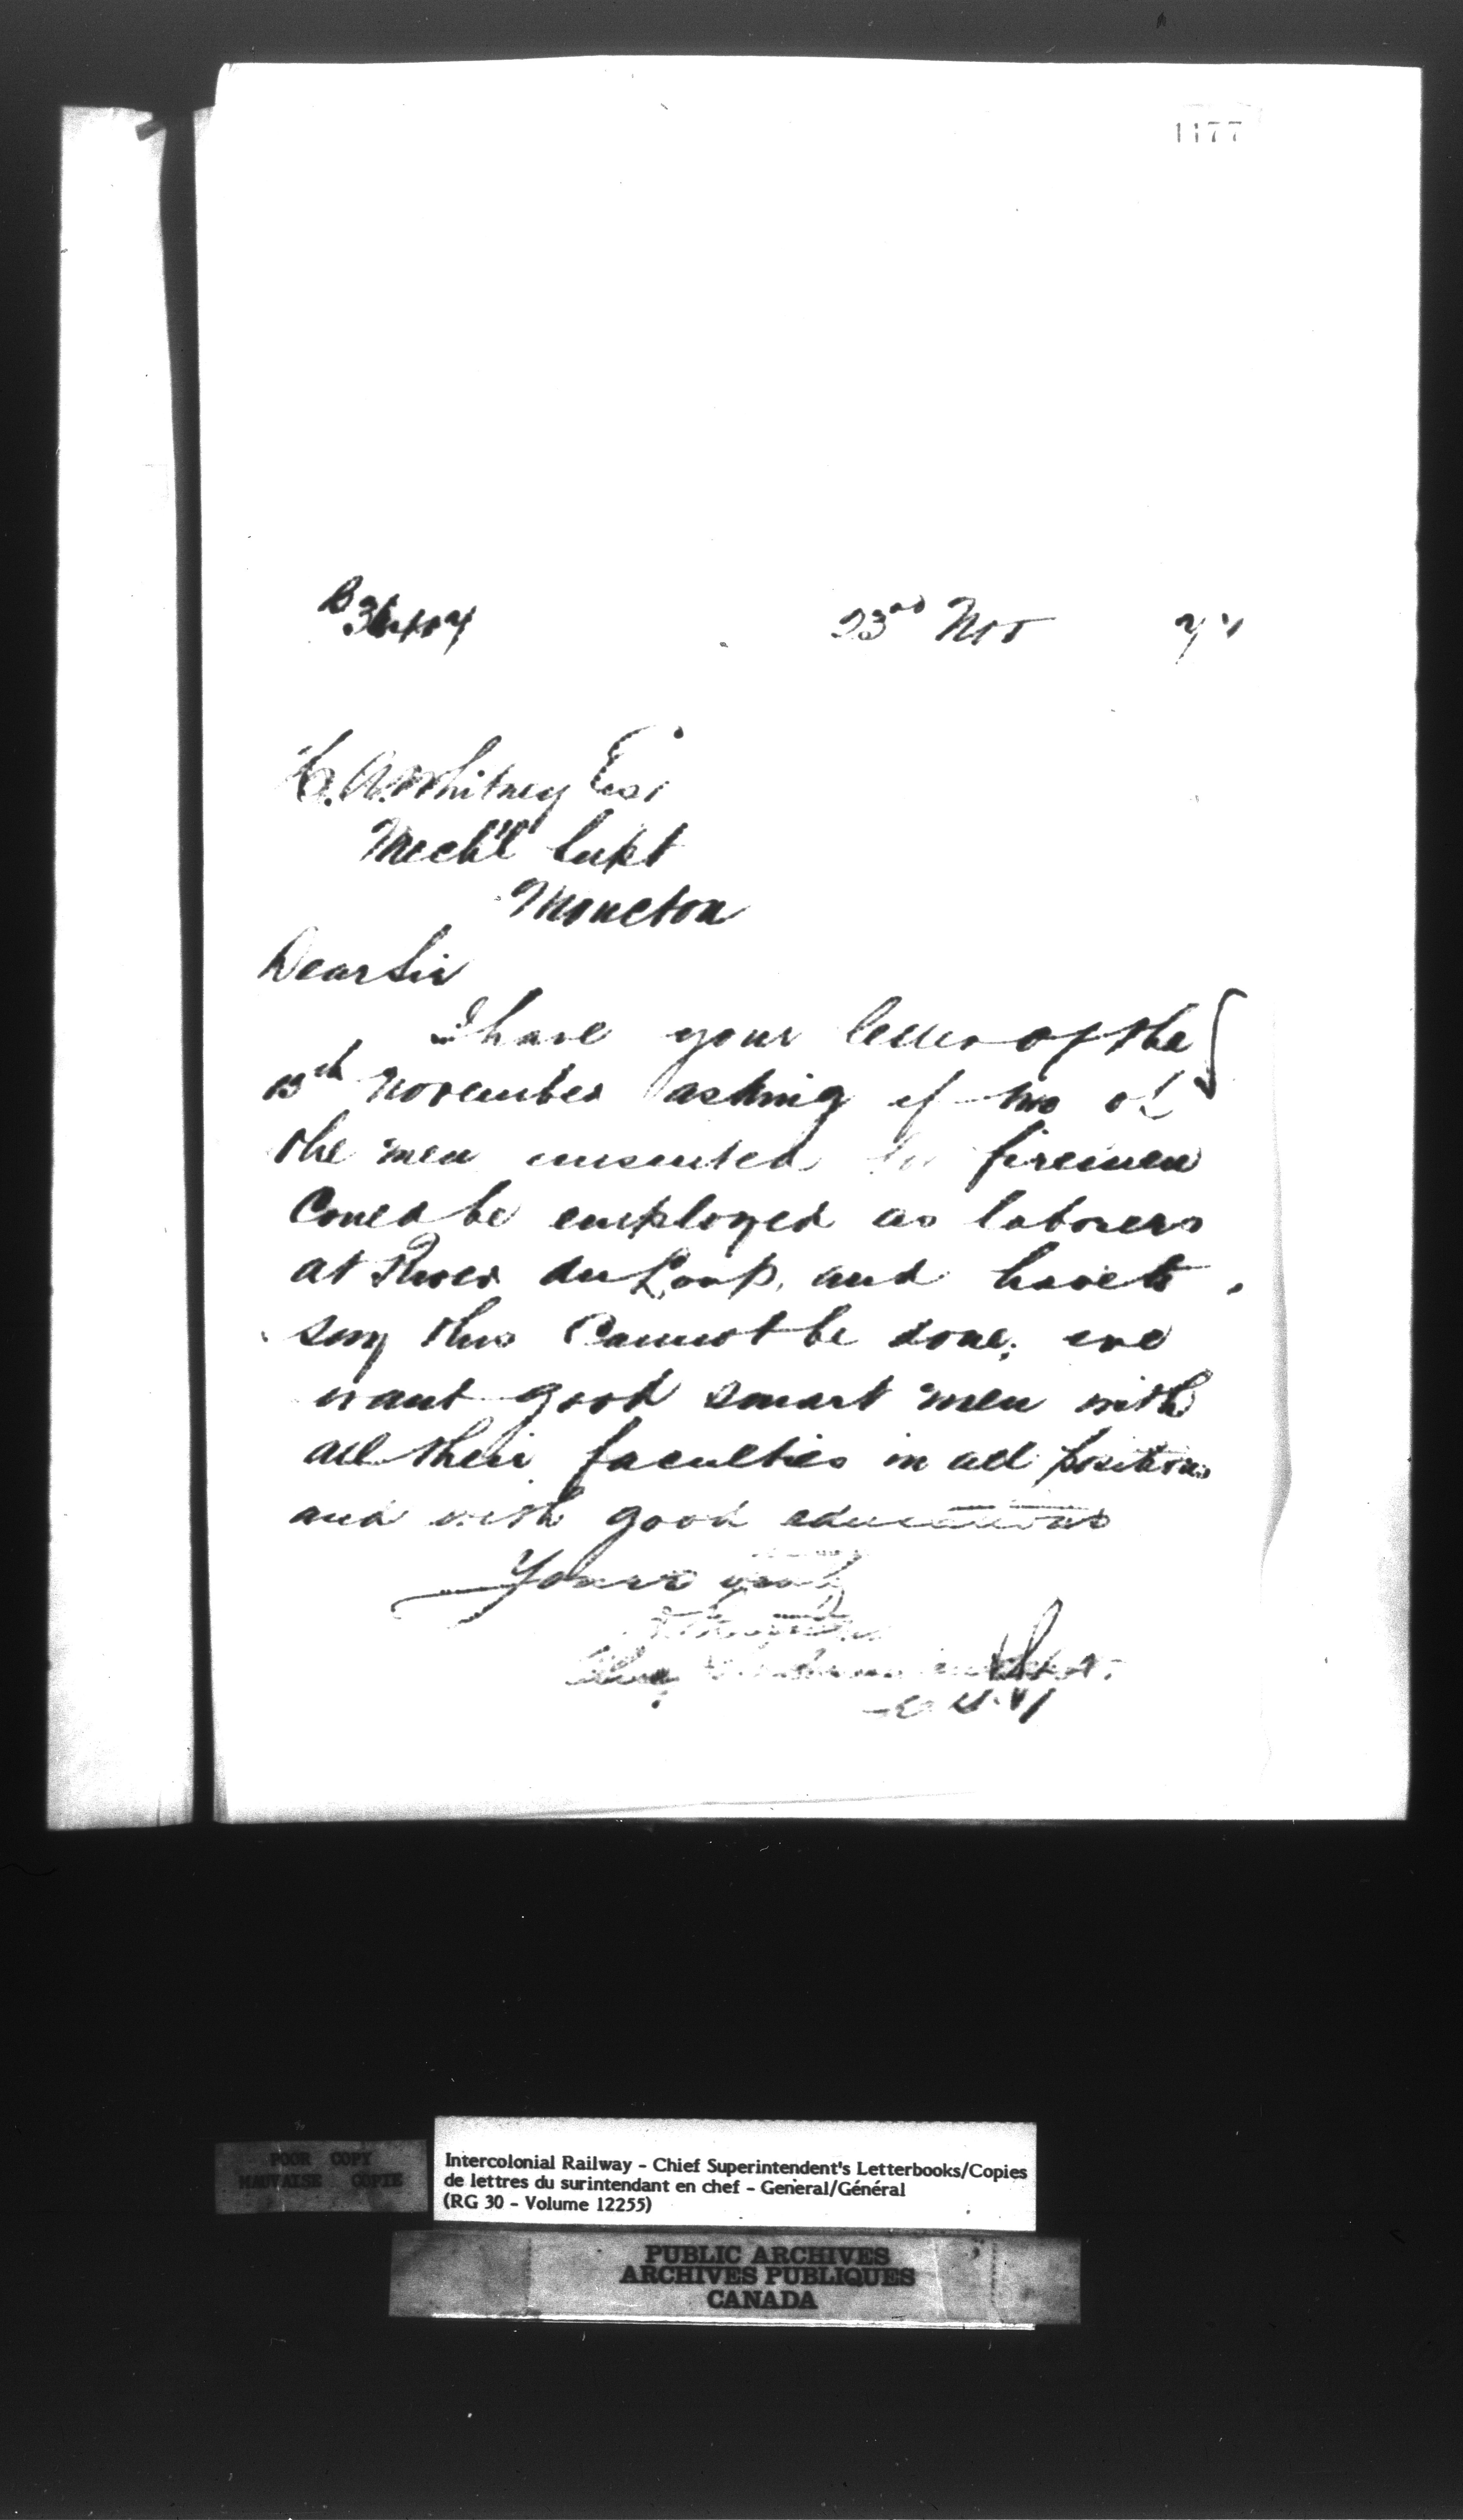 1177
23rd Nov 77
H. A. Whitney Esq
Mech'l Supt
Moncton
Dear Sir
I have your letter of the
15th November asking if two of
the men unsuited for firemen
Could be employed as laborers
at River du Loup, and have to
say this Cannot be done, we
want good smart men with
all their faculties in all positions
and with good educations
Yours truly
Supt.
POOR COPY
MAUVAISE COPIE
Intercolonial Railway - Chief Superintendent's Letterbooks/Copies
de lettres du surintendant en chef - General/Général
(RG 30 - Volume 12255)
PUBLIC ARCHIVES
ARCHIVES PUBLIQUES
CANADA